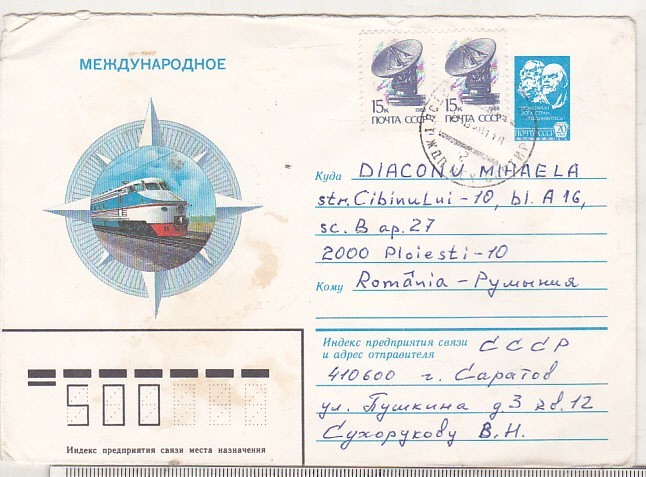 МЕЖДУНАРОДНОЕ
15к 1988
ПОЧТА СССР
15к 1988
ПОЧТА СССР
ПОЧТА СССР 20
Куда DIACONU MIHAELA
str. Cibinului-10, bl. A 16,
sc. B ap. 27
2000 Ploiesti-10
Кому România - Румыния
Индекс предприятия связи и адрес отправителя СССР
410600 г. Саратов
ул. Пушкина д. 3 кв. 12
Сухорукову В.Н.
500
Индекс предприятия связи места назначения